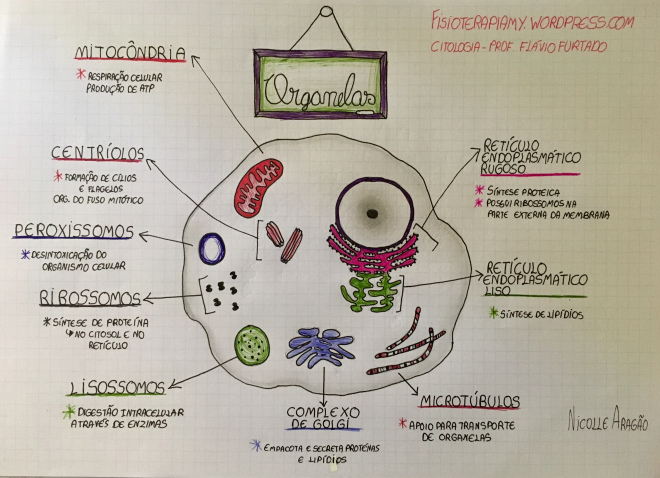 FISIOTERAPIAMY.WORDPRESS.COM
CITOLOGIA - PROF. FLÁVIO FURTADO
Organelas
MITOCÔNDRIA
* RESPIRAÇÃO CELULAR
PRODUÇÃO DE ATP
CENTRÍOLOS
* FORMAÇÃO DE CÍLIOS
E FLAGELOS
ORG. DO FUSO MITÓTICO
PEROXISSOMOS
* DESINTOXICAÇÃO DO
ORGANISMO CELULAR
RIBOSSOMOS
* SÍNTESE DE PROTEÍNA
↳ NO CITOSOL E NO
RETÍCULO
LISOSSOMOS
* DIGESTÃO INTRACELULAR
ATRAVÉS DE ENZIMAS
COMPLEXO
DE GOLGI
* EMPACOTA E SECRETA PROTEÍNAS
E LIPÍDIOS
RETÍCULO
ENDOPLASMÁTICO
RUGOSO
* SÍNTESE PROTEICA
* POSSUI RIBOSSOMOS NA
PARTE EXTERNA DA MEMBRANA
RETÍCULO
ENDOPLASMÁTICO
LISO
* SÍNTESE DE LIPÍDIOS
MICROTÚBULOS
* APOIO PARA TRANSPORTE
DE ORGANELAS
NICOLLE ARAGÃO